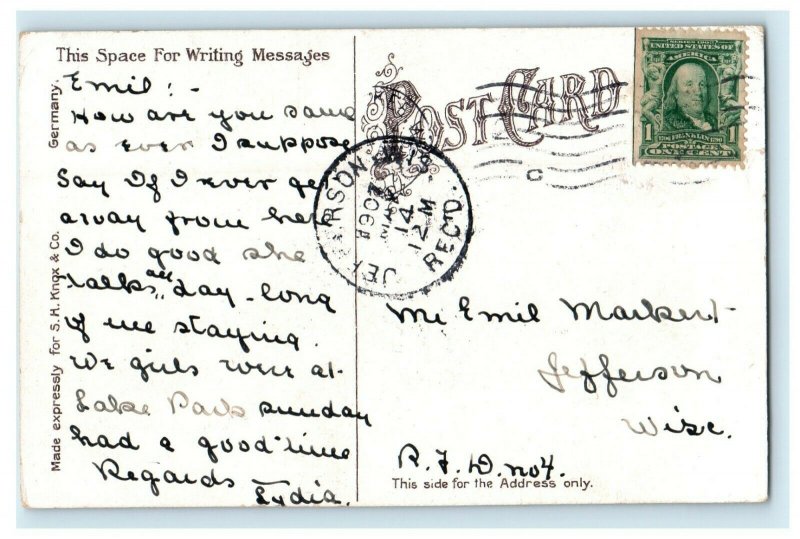 This Space For Writing Messages
Emil:-
How are you same
as ever I suppose
Say If I ever get
away from here
I do good she
talks all day-long
of me staying.
We girls were at
Lake Park sunday
had a good time
Regards
Lydia.
Made expressly for S. H. Knox & Co. Germany.
POST CARD
SERIES 1902
UNITED STATES OF
AMERICA
1 FRANKLIN 1
POSTAGE
ONE CENT
JEFFERSON
1907
MAR
14
12 M
REC'D.
Mr Emil Markert
Jefferson
Wisc.
R.F.D. no 4.
This side for the Address only.